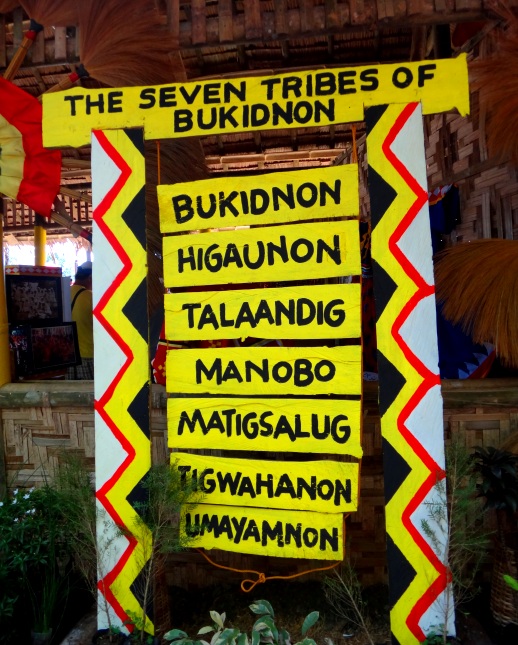 THE SEVEN TRIBES OF
BUKIDNON
BUKIDNON
HIGAUNON
TALAANDIG
MANOBO
MATIGSALUG
TIGWAHANON
UMAYAMNON